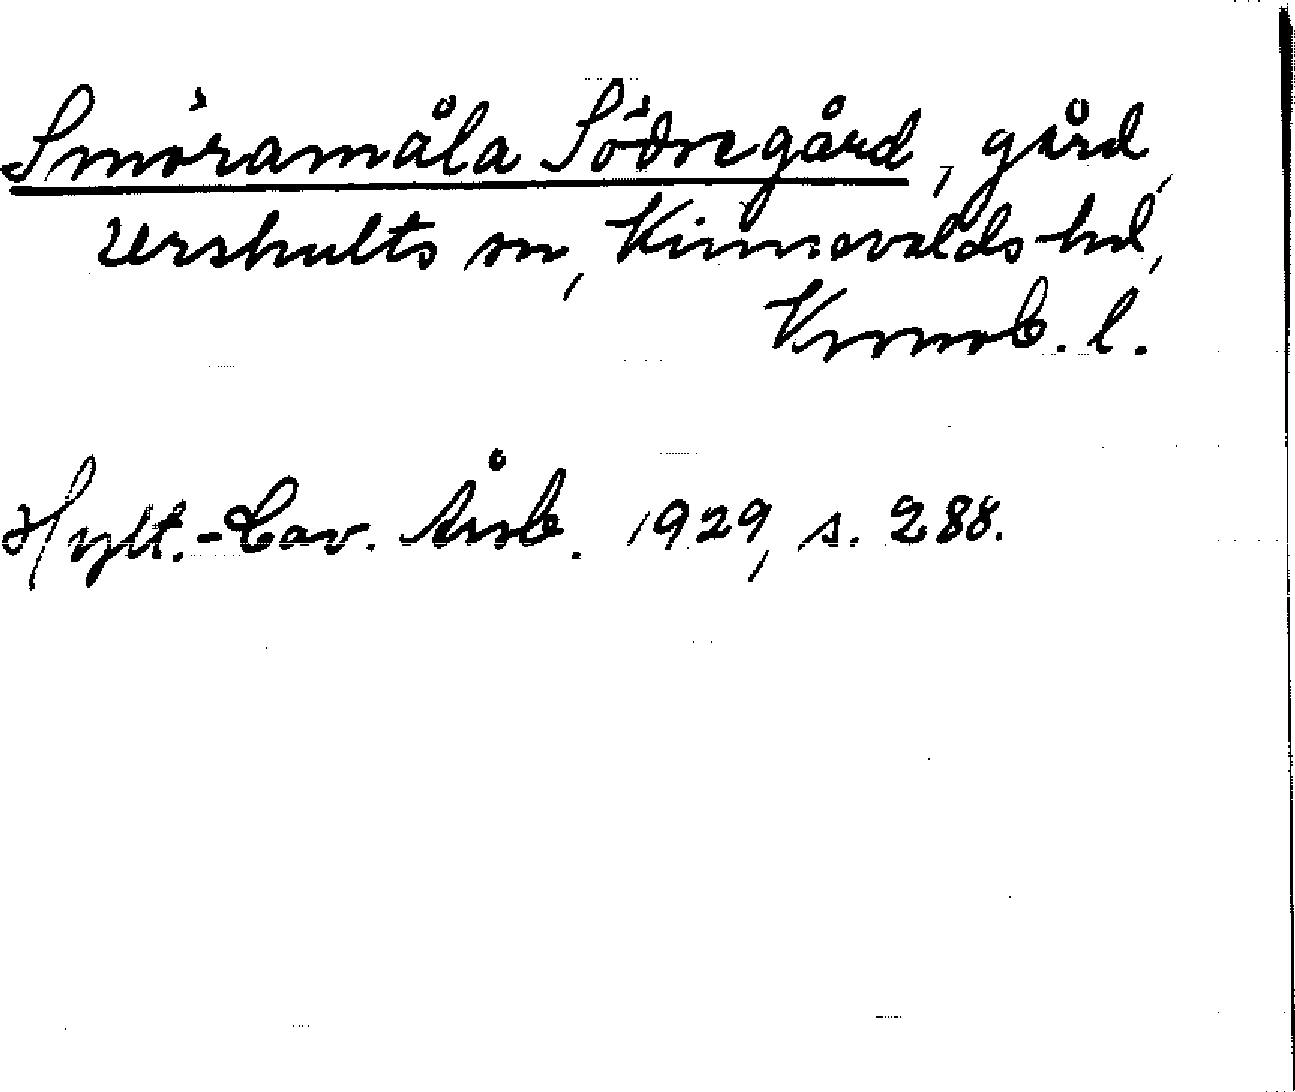 Smöramåla Södregård, gård,
Urshults sn, Kinnevalds hd,
Kronob. l.
Hylt.-Cav. Årsb. 1929, s. 288.